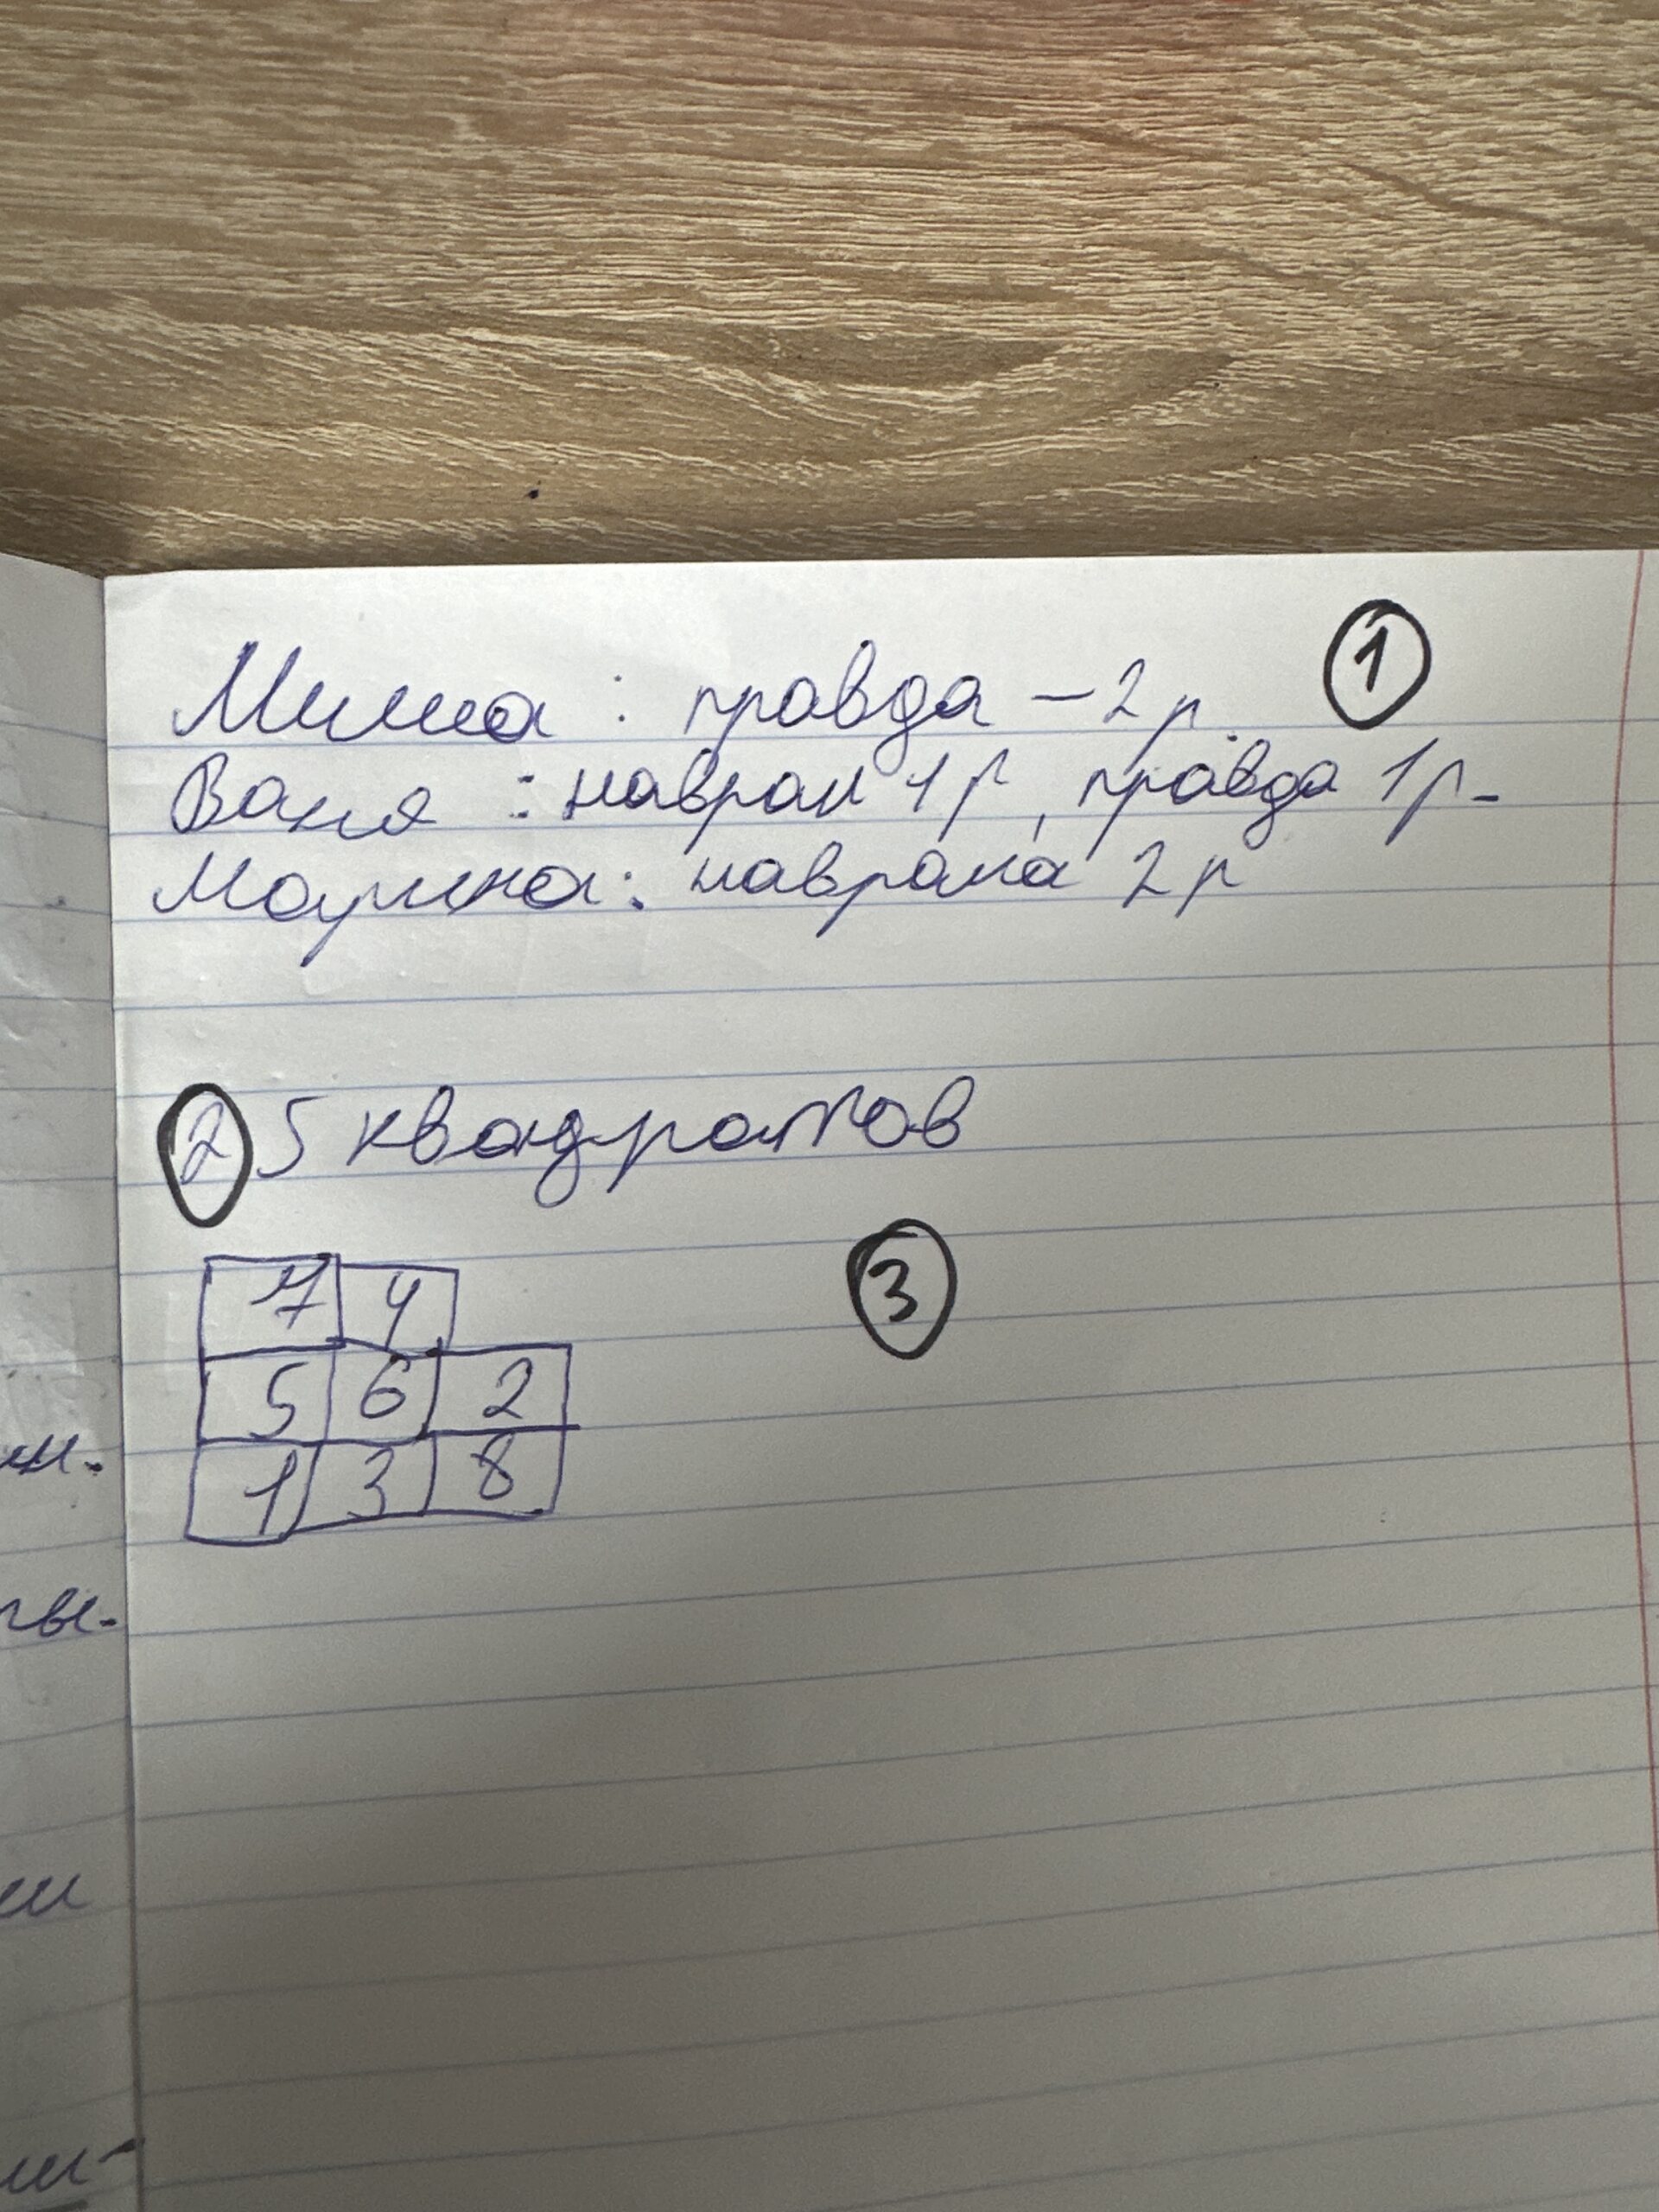 Миша: правда – 2 р. 1
Ваня: наврал 1 р, правда 1 р.
Марина: наврала 2 р
2 5 квадратов
3
7 4
5 6 2
1 3 8